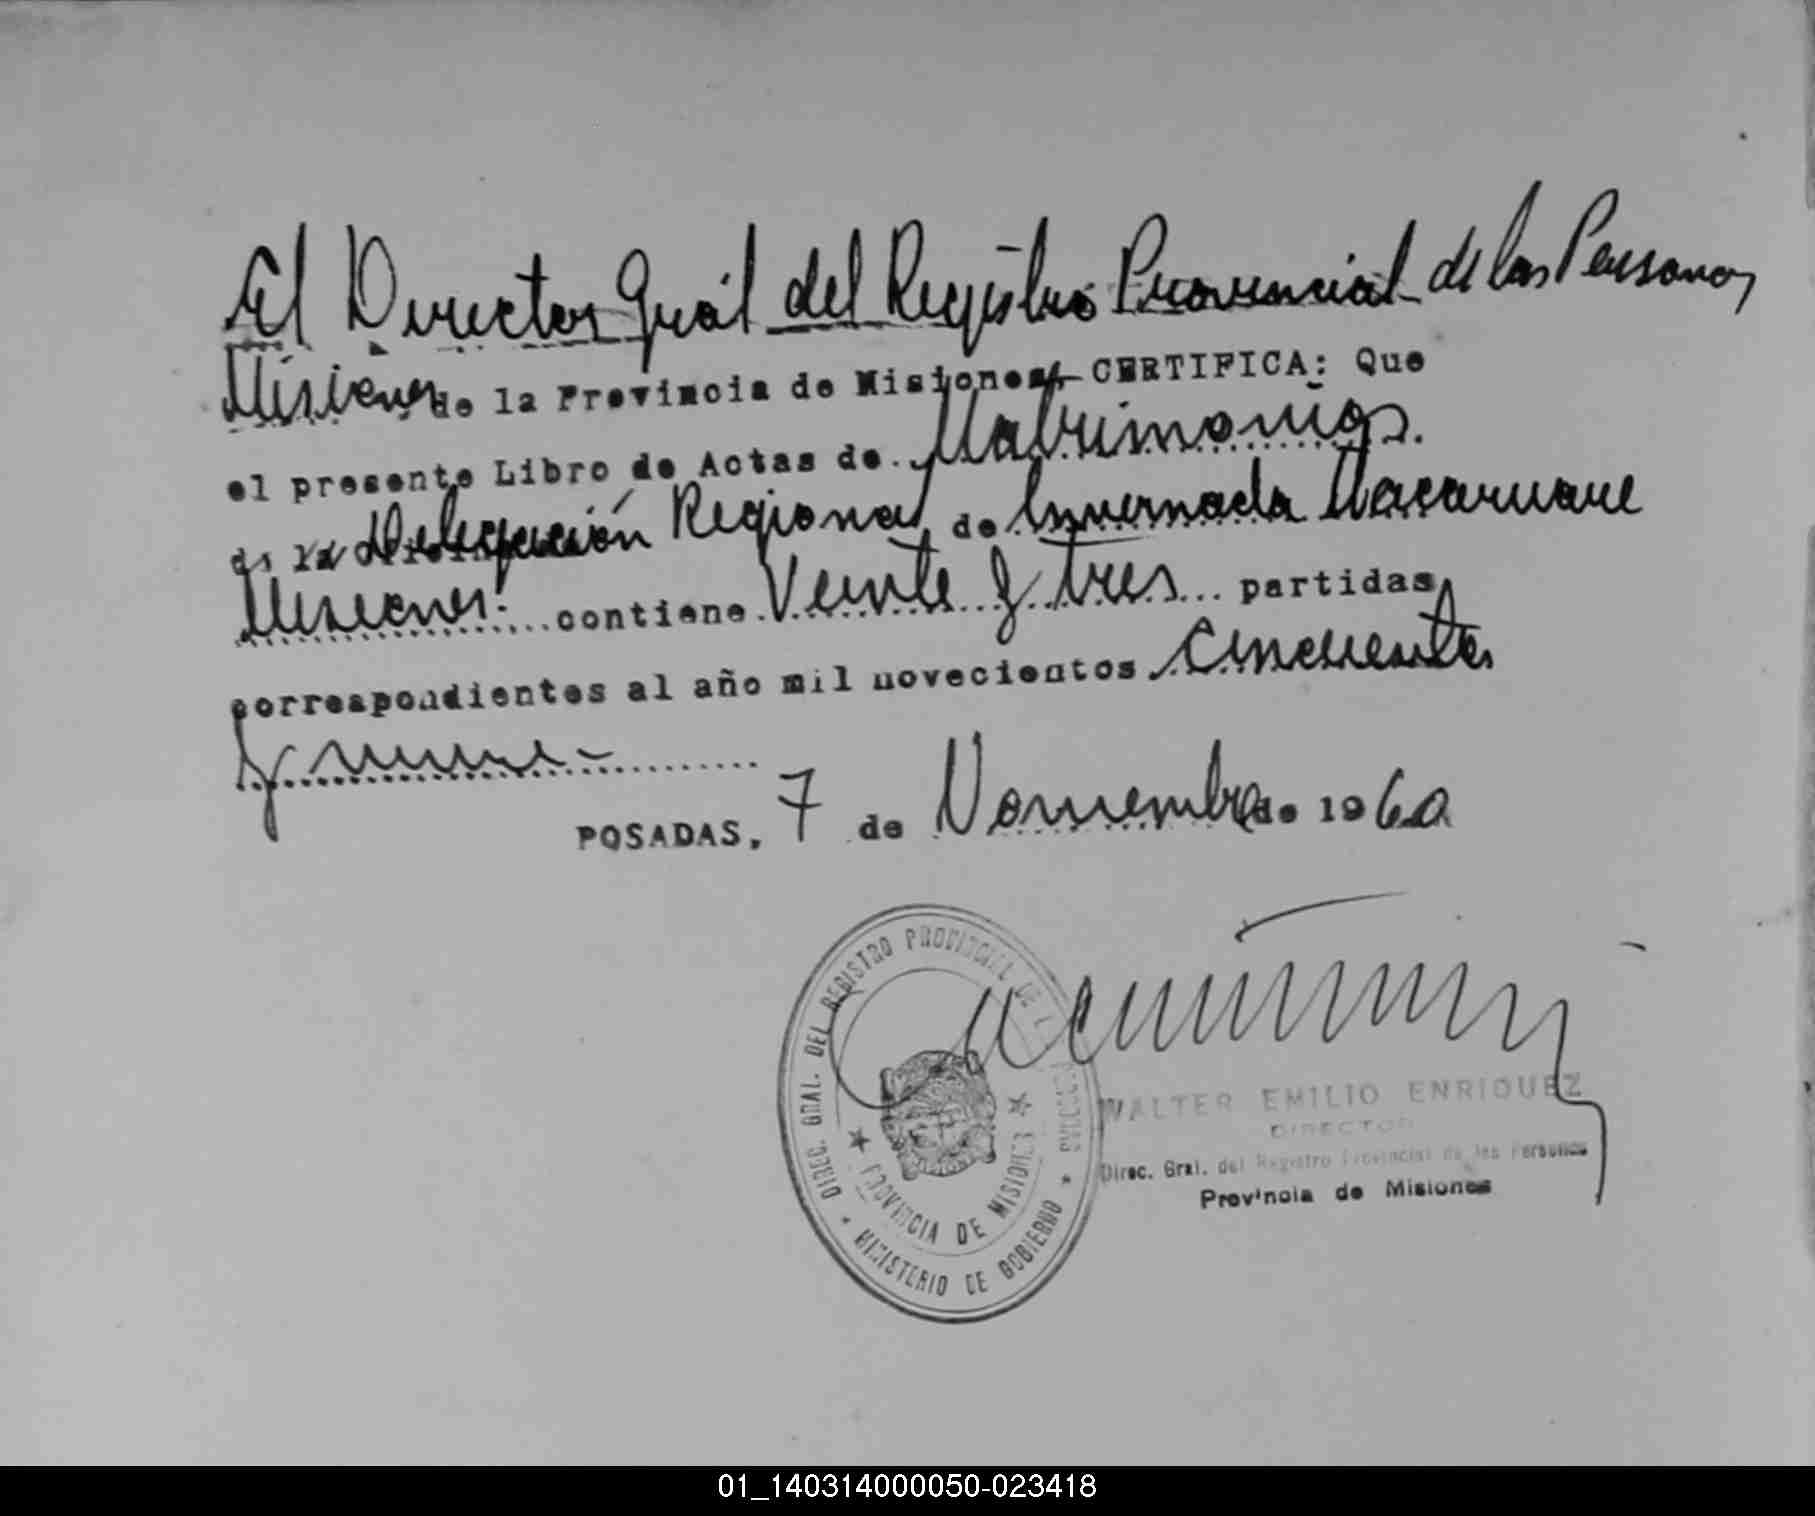 El Director Gral del Registro Provincial de las Personas
Misiones de la Provincia de Misiones, CERTIFICA: Que
el presente Libro de Actas de Matrimonios.
de la Delegación Regional de Invernada Itacaruare
Misiones. contiene Veinte y tres partidas
correspondientes al año mil novecientos Cincuenta
y nueve-
POSADAS, 7 de Noviembre de 1960
DIREC. GRAL. DEL REGISTRO PROVINCIAL DE L
PROVINCIA DE MISIONES
MINISTERIO DE GOBIERNO
WALTER EMILIO ENRIQUEZ
DIRECTOR
Direc. Gral. del Registro Provincial de las Personas
Provincia de Misiones
01_140314000050-023418